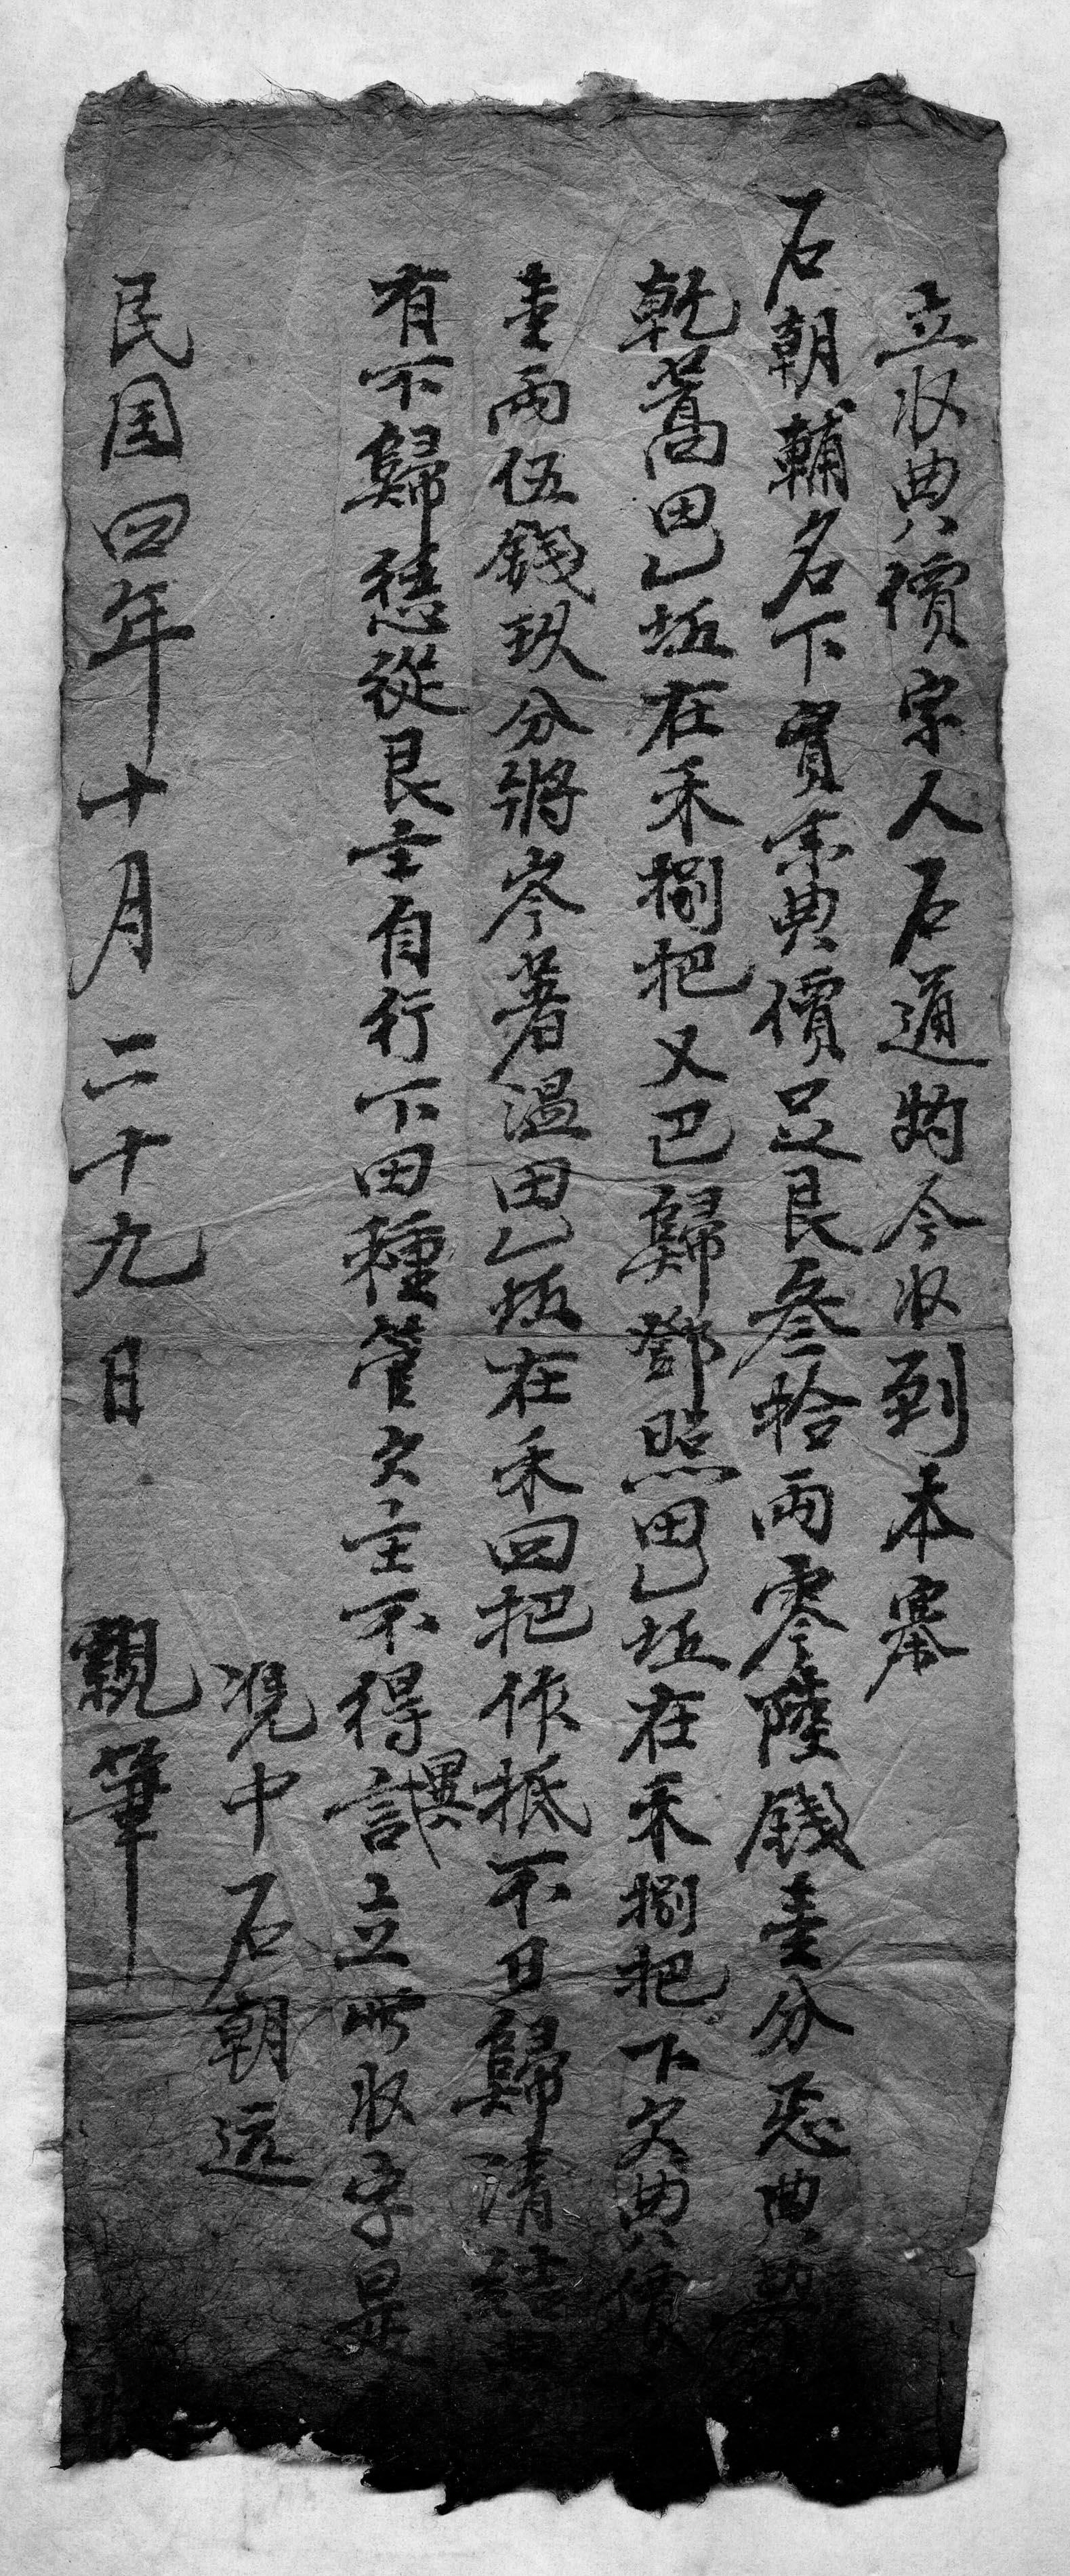 立收典價字人石通灼今收到本寨
石朝輔名下實系典價足艮叁拾兩零陸錢壹分恐典契
乾蒿田乙坵在禾捌把又巴歸鄧照田乙坵在禾捌把下欠典價
壹兩伍錢玖分將岑著温田乙坵在禾四把作抵不日歸清若
有不歸恁從艮主自行下田種管欠主不得異言立此收字是
凴中石朝远
民国四年十月二十九日 親筆